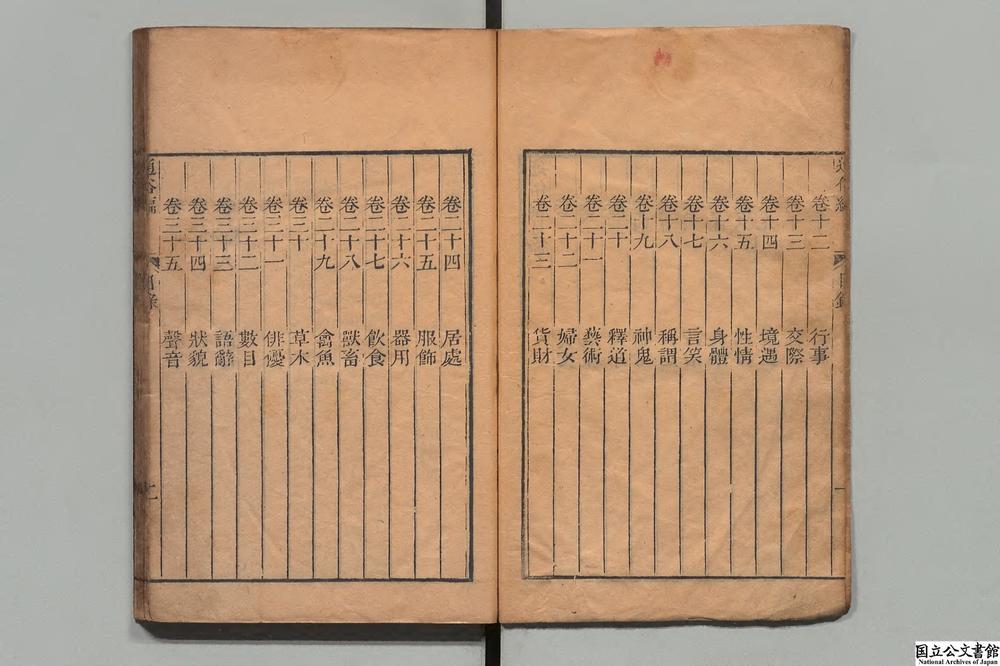 卷十二 行事
卷十三 交際
卷十四 境遇
卷十五 性情
卷十六 身體
卷十七 言笑
卷十八 稱謂
卷十九 神鬼
卷二十 釋道
卷二十一 藝術
卷二十二 婦女
卷二十三 貨財
卷二十四 居處
卷二十五 服飾
卷二十六 器用
卷二十七 飲食
卷二十八 獸畜
卷二十九 禽魚
卷三十 草木
卷三十一 俳優
卷三十二 數目
卷三十三 語辭
卷三十四 狀貌
卷三十五 聲音
通俗編 目錄
国立公文書館
National Archives of Japan